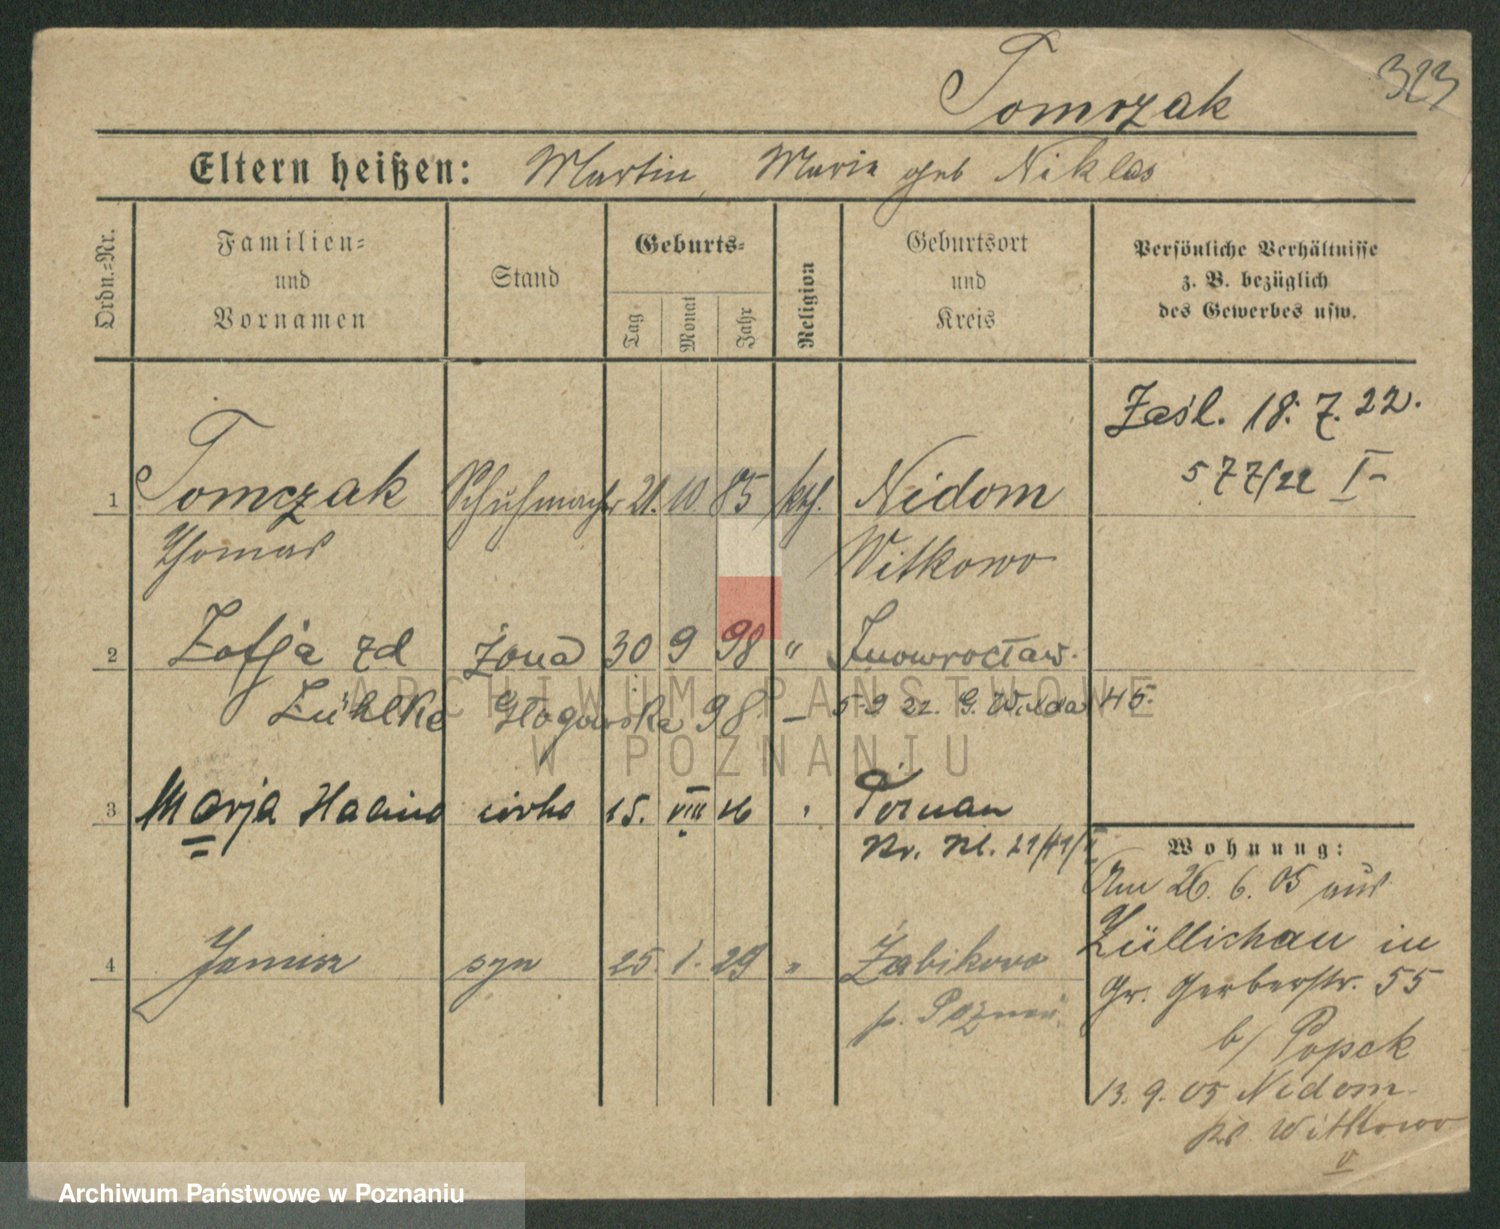 Tomczak
323
Eltern heißen: Martin, Marie geb Niklas
Ordn.=Nr.
Familien=
und
Vornamen
Stand
Geburts=
Tag
Monat
Jahr
Religion
Geburtsort
und
Kreis
Persönliche Verhältnisse
z. B. bezüglich
des Gewerbes usw.
Zaśl. 18. 7. 22.
577/22 I-
1 Tomczak Schuhmacher 21. 10. 85 kth. Nidom
Thomas Witkowo
2 Zofja zd żona 30 9 98 " Inowrocław.
Zühlke Głogowska 98 – 5.9 22. G. Wilda 45.
3 Marja Halina córka 15. VIII 26 " Poznań
Kr. Nl. 21/41/II
4 Janusz syn 25. 1. 29 " Żabikowo
p. Poznań
Wohnung:
Am 26. 6. 05 aus
Züllichau in
Gr. Gerberstr. 55
b/ Popek
13. 9. 05 Nidom
Kr. Witkowo
ARCHIWUM PAŃSTWOWE
W POZNANIU
Archiwum Państwowe w Poznaniu